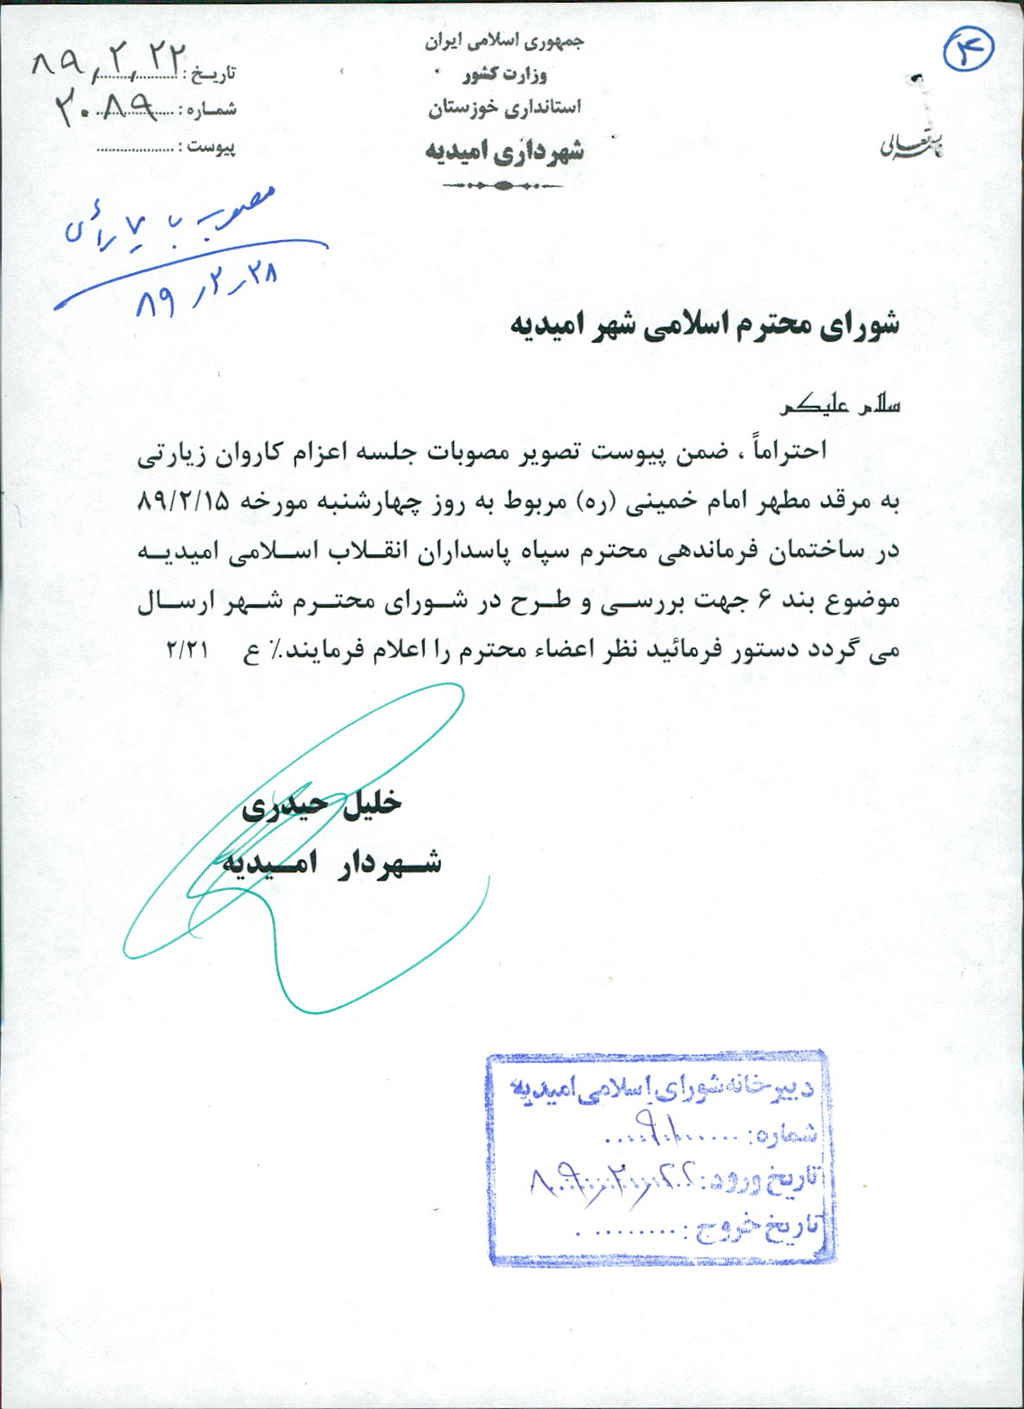 ۴
باسمه تعالی
جمهوری اسلامی ایران
وزارت کشور
استانداری خوزستان
شهرداری امیدیه
تاریخ : ۸۹٫۲٫۲۲
شماره : ۲۰۸۹
پیوست : ..................
مصوب با رأی
۸۹٫۲٫۲۸
شورای محترم اسلامی شهر امیدیه
سلام علیکم
احتراماً ، ضمن پیوست تصویر مصوبات جلسه اعزام کاروان زیارتی
به مرقد مطهر امام خمینی (ره) مربوط به روز چهارشنبه مورخه ۸۹/۲/۱۵
در ساختمان فرماندهی محترم سپاه پاسداران انقلاب اسلامی امیدیه
موضوع بند ۶ جهت بررسی و طرح در شورای محترم شهر ارسال
می گردد دستور فرمائید نظر اعضاء محترم را اعلام فرمایند.٪ ع ۲/۲۱
خلیل حیدری
شهردار امیدیه
دبیرخانه شورای اسلامی امیدیه
شماره:
تاریخ ورود: ۸۹٫۲٫۲۲
تاریخ خروج : ..........